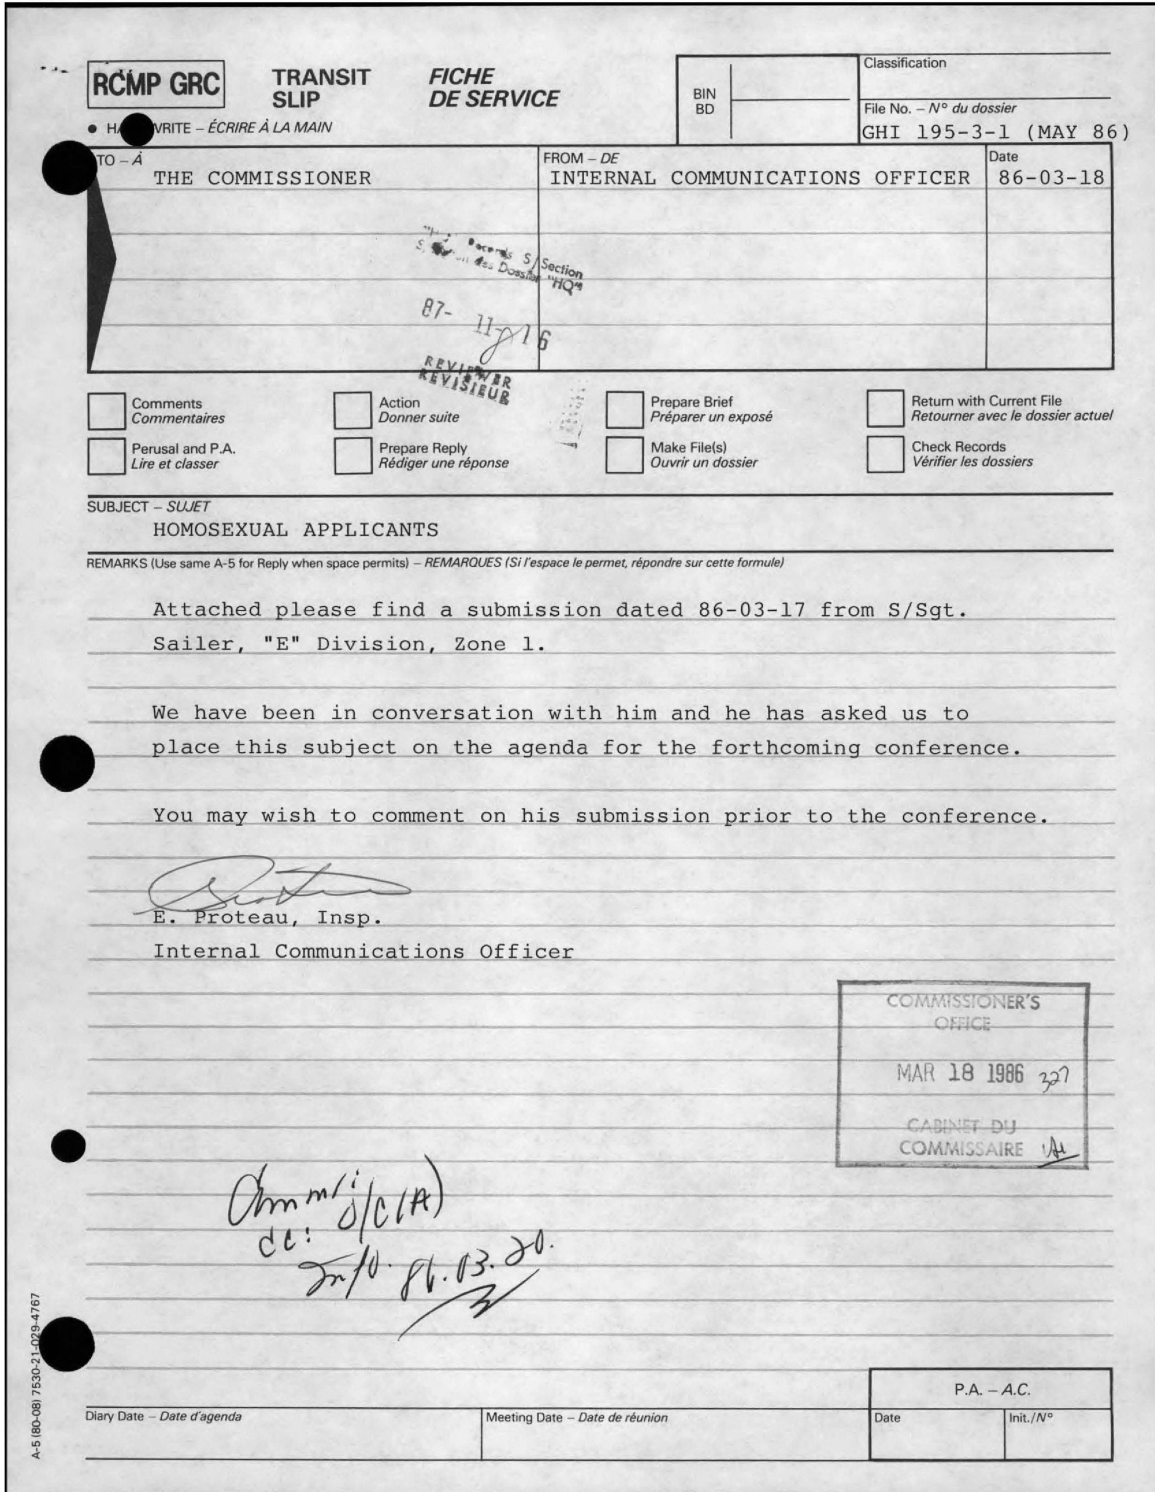 RCMP GRC
TRANSIT SLIP
FICHE DE SERVICE
BIN
BD
Classification
File No. – N° du dossier
GHI 195-3-1 (MAY 86)
– ÉCRIRE À LA MAIN
TO – À
THE COMMISSIONER
FROM – DE
INTERNAL COMMUNICATIONS OFFICER
Date
86-03-18
Records S/Section
des Dossier "HQ"
87-11-16
REVIEWER
REVISEUR
Comments
Commentaires
Action
Donner suite
Prepare Brief
Préparer un exposé
Return with Current File
Retourner avec le dossier actuel
Perusal and P.A.
Lire et classer
Prepare Reply
Rédiger une réponse
Make File(s)
Ouvrir un dossier
Check Records
Vérifier les dossiers
SUBJECT – SUJET
HOMOSEXUAL APPLICANTS
REMARKS (Use same A-5 for Reply when space permits) – REMARQUES (Si l'espace le permet, répondre sur cette formule)
Attached please find a submission dated 86-03-17 from S/Sgt.
Sailer, "E" Division, Zone 1.
We have been in conversation with him and he has asked us to
place this subject on the agenda for the forthcoming conference.
You may wish to comment on his submission prior to the conference.
E. Proteau, Insp.
Internal Communications Officer
COMMISSIONER'S
OFFICE
MAR 18 1986 327
CABINET DU
COMMISSAIRE
cc: D/C(A)
Info. 86.03.20.
P.A. – A.C.
Diary Date – Date d'agenda
Meeting Date – Date de réunion
Date
Init./N°
A-5 (80-08) 7530-21-029-4767